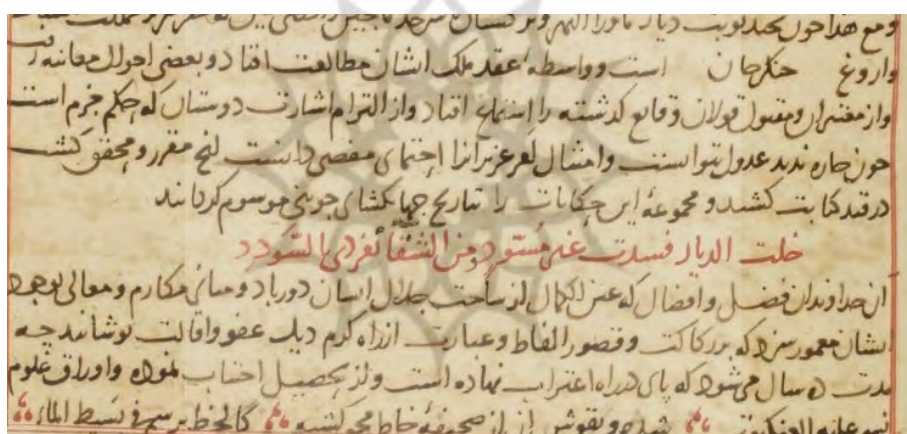 ومع هذا چون بحد نوبت دیار ماوراءالنهر و ترکستان سرحد ماچین
واروغ چنکزخان است و واسطهٔ عقد ملک ایشان مطالعت افتاد و بعضی احوال معاینه
واز معتبران و مقبول قولان وقایع گذشته را استماع افتاد و از التزام اشارت دوستان که حکم جزم است
چون چاره ندید عدول نتوانست و امتثال امر عزیزانرا احتمای مفضی دانست انچ مقرر و محقق گشت
در قید کتابت کشید و مجموعهٔ این حکایات را بتاریخ جهانکشای جوینی موسوم گردانید
خلت الدیار فسدت غیر مسود ومن الشقاء تفردی بالسودد
از خداوندان فضل و افضال که عین الکمال از ساحت جلال ایشان دور باد و مبانی مکارم و معالی بوجود
ایشان معمور سزد که بر رکاکت و قصور الفاظ و عبارت از راه کرم ذیل عفو و اقالت پوشانند چه
مدت ده سال می‌شود که پای در راه اغتراب نهاده است و از تحصیل اجتناب نموده و اوراق علوم
نسج علیه العنکبوت شده و نقوش آن از صحیفهٔ خاطر محو گشته کالخط یرسم فی بسیط الماء